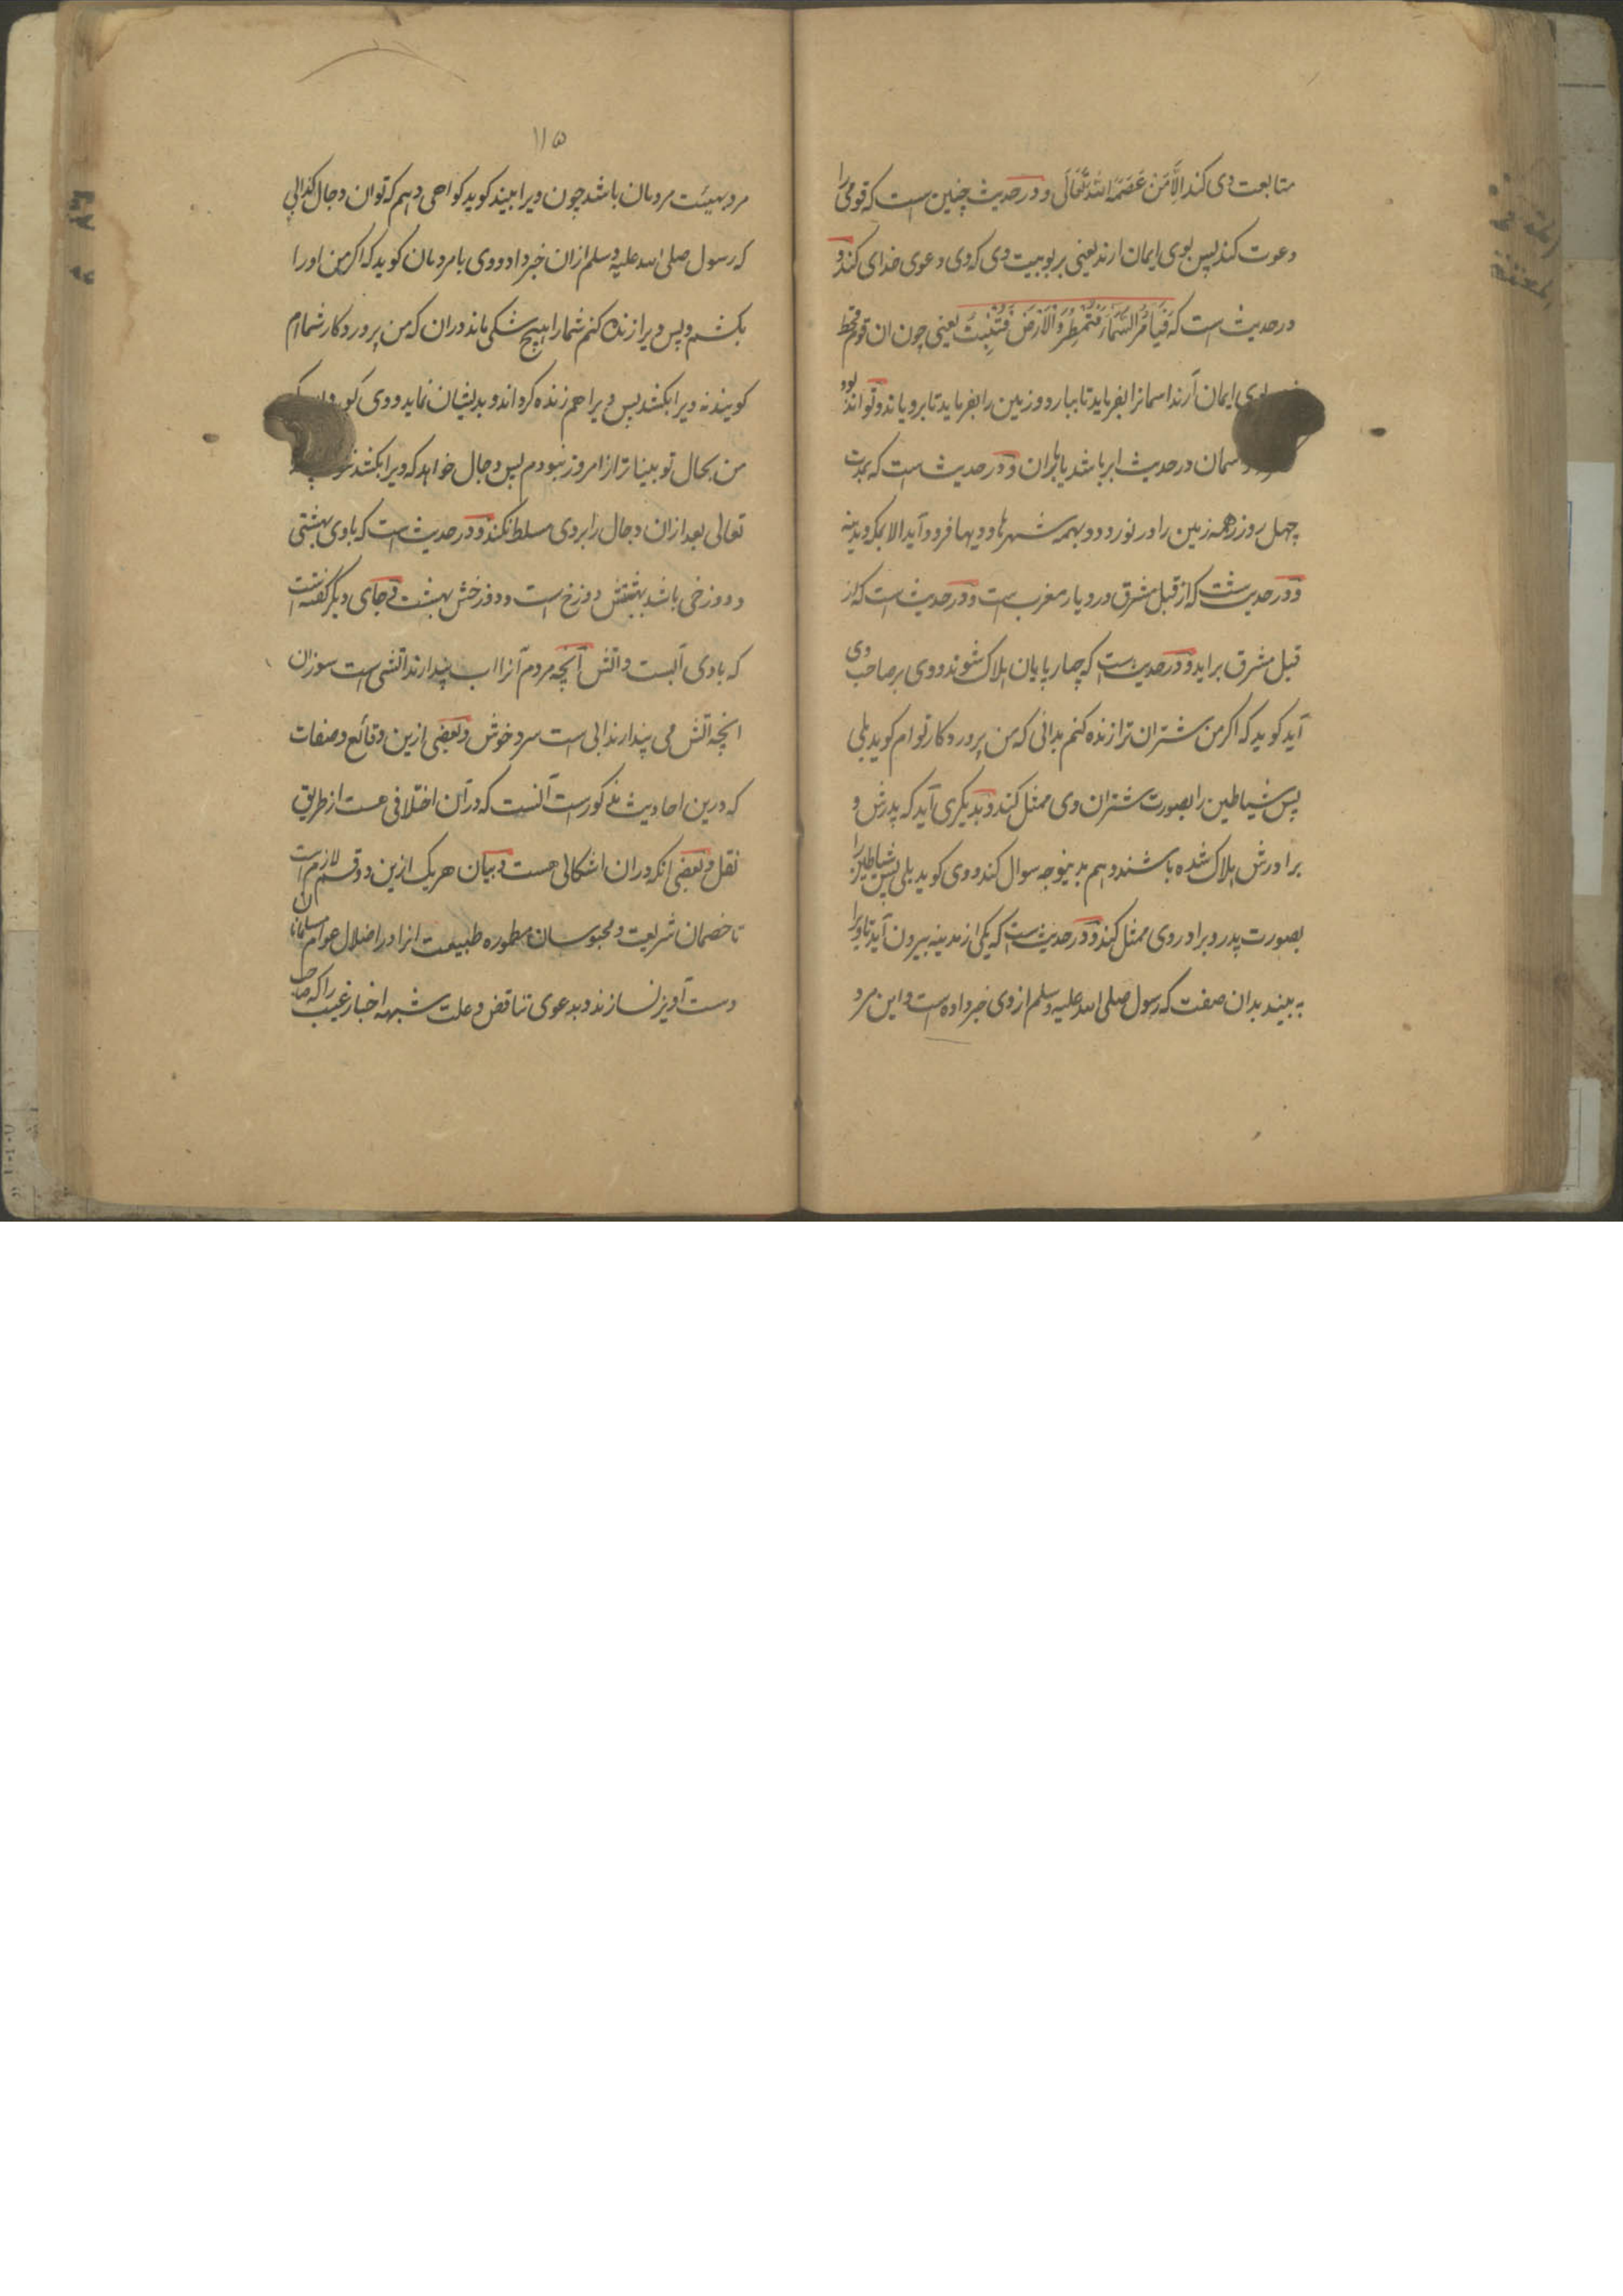 متابعت وی کند الا من عصمه الله تعالی و در حدیث چنین است که قومی را
دعوت کند پس بوی ایمان ارند یعنی بربوبیت وی که وی دعوی خدای کند و
در حدیث است که فیامر السماء فتمطر والارض فتنبت یعنی چون ان قوم
بوی ایمان آرند اسمانرا بفرماید تا ببارد و زمین را بفرماید تا برویاند و تواند بود
سمان در حدیث ابر باشد یا باران و در حدیث است که بمدت
چهل روز همه زمین را در نوردد و بهمه شهرها و دیها فرود آید الا بمکه و مدینه
و در حدیثست که از قبل مشرق در دیار مغرب است و در حدیث است که از
قبل مشرق براید و در حدیث است که چهارپایان هلاک شوند و وی بر صاحب وی
آید کوید که اکر من شتران ترا زنده کنم بدانی که من پروردکار توام کوید بلی
پس شیاطین را بصورت شتران وی ممثل کند و بدیکری آید که پدرش و
برادرش هلاک شده باشند و هم بدینوجه سوال کند و وی کوید بلی پس شیاطین را
بصورت پدر و برادر وی ممثل کند و در حدیث است که یکی از مدینه بیرون آید تا ویرا
به بیند بدان صفت که رسول صلی الله علیه وسلم از وی خبر داده است و این مرد
۱۱۵
مرد بهیئت مردمان باشد چون ویرا بیند کوید کواهی دهم که توان دجال کذابی
که رسول صلی الله علیه وسلم ازان خبر داد و وی با مردمان کوید که اکر من اورا
بکشم و پس ویرا زنده کنم شمارا هیچ شکی ماند دران که من پروردکار شماام
کویند نه ویرا بکشند پس ویرا هم زنده کرداند و بدیشان نماید و وی کوید
من بحال تو بیناتر از امروز نبودم پس دجال خواهد که ویرا بکشد
تعالی بعد ازان دجال را بر وی مسلط نکند و در حدیث است که با وی بهشتی
و دوزخی باشد بهشتش دوزخ است و دوزخش بهشت و جای دیکر کفته است
که با وی آبست و اتش آنچه مردم آنرا اب پندارند اتشی است سوزان
انچه اتش می پندارند ابی است سرد خوش و بعضی ازین وقائع و صفات
که درین احادیث مذکورست آنست که در آن اختلافی هست از طریق
نقل و بعضی انکه دران اشکالی هست و بیان هریک ازین دو قسم لازم است
تا خصمان شریعت و محبوسان مطموره طبیعت انرا در اضلال عوام مسلمانان
دست آویز نسازند و بدعوی تناقض و علت شبهه اخبار غیب را که صاحب